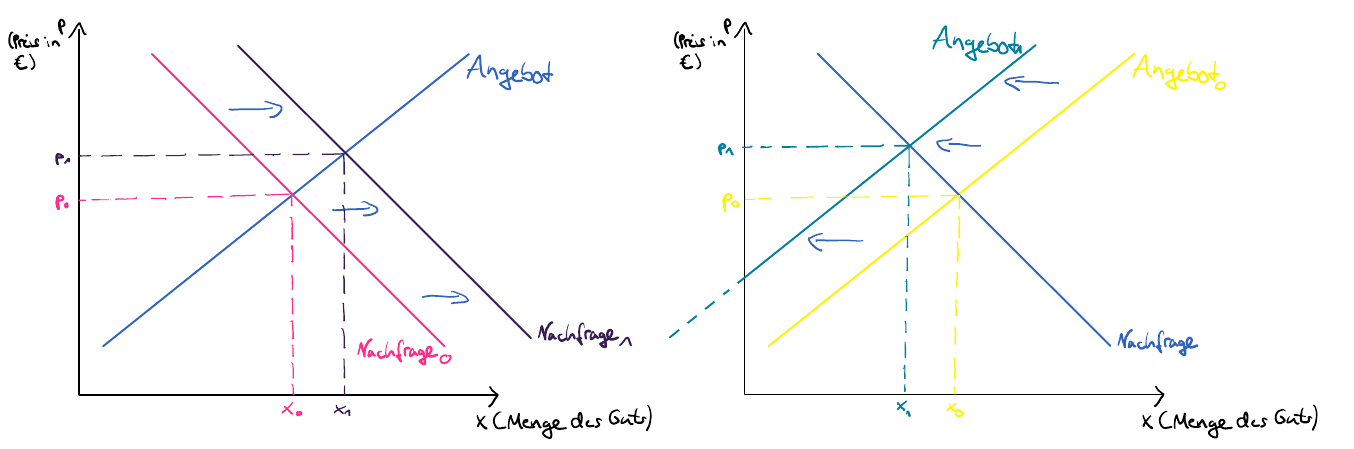 P
(Preis in
€)
Angebot
p₁
p₀
Nachfrage₀
Nachfrage₁
x₀
x₁
X (Menge des Guts)
P
(Preis in
€)
Angebot₁
Angebot₀
p₁
p₀
Nachfrage
x₁
x₀
X (Menge des Guts)